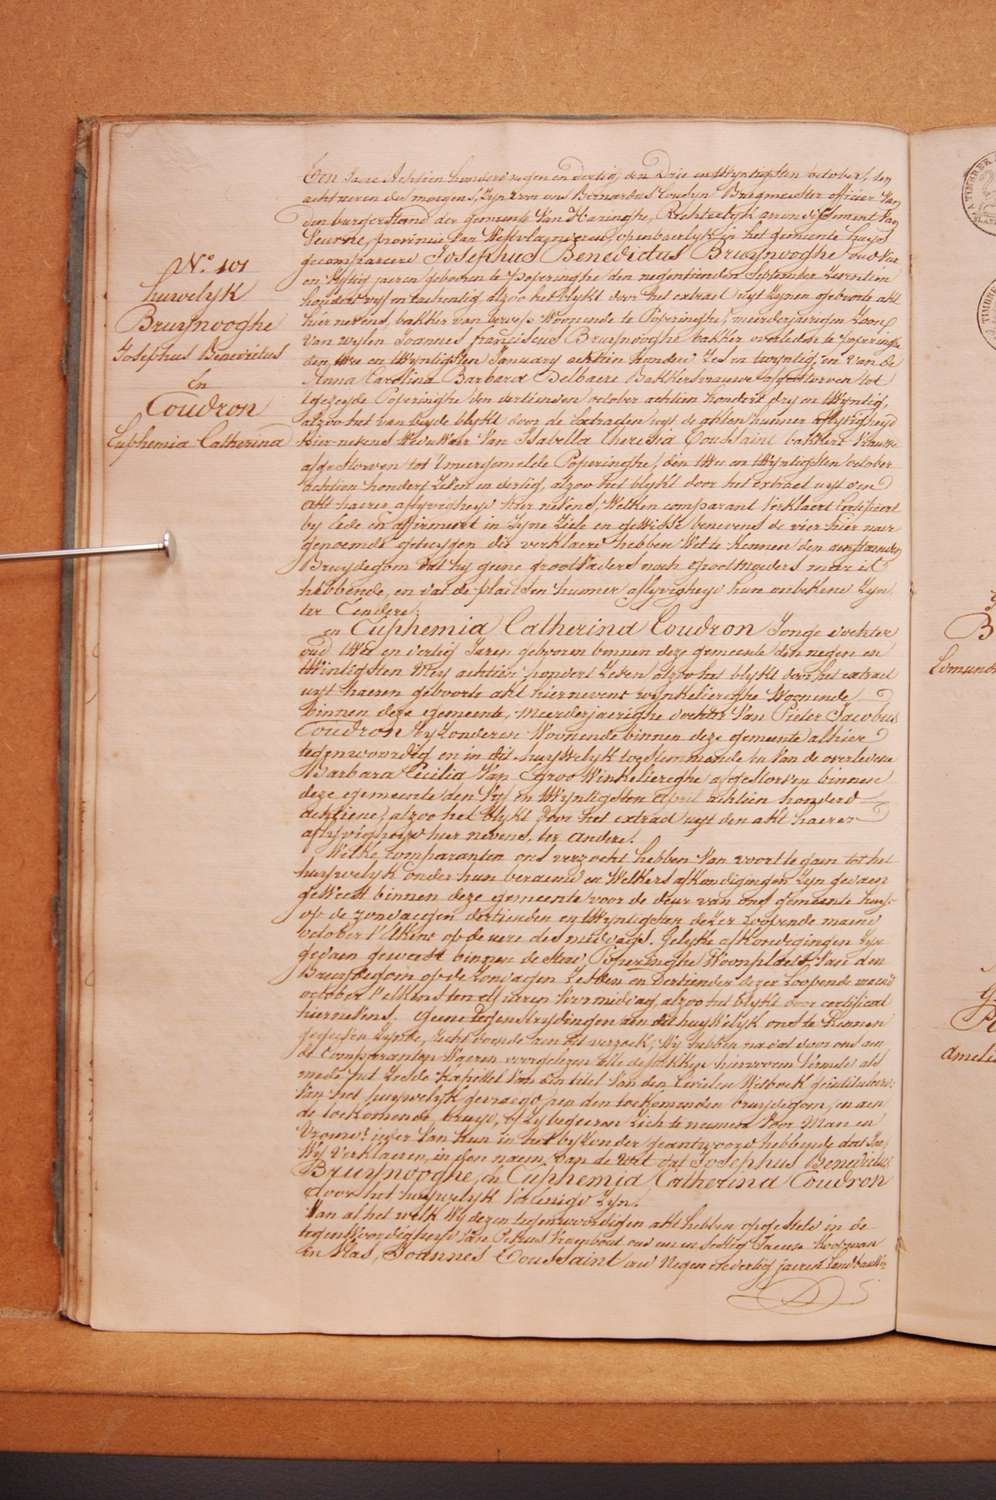 No 101
huwelyk
Bruijnooghe
Josephus Benedictus
En
Coudron
Euphemia Catherina
Een Jaere Achtien honderd negen en dertig, den Drie en twyntigsten october, ten
acht ueren des morgens, Zyn voor ons Bernardus Burgmeester officier Van
den burgerstand der gemeente Van Haringhe, Rechterlyk arrondissement Van
Veurne, provincie Van Westvlaenderen, openbaerlyk in het gemeente huijs
gecompareerd Josephus Benedictus Bruijnooghe oud Vier
en Vyftig jaeren geboren te Poperinghe den negentienden September Zeventien
honderd vijf en tachentig alzoo het blykt door het extract uijt Zynen geboorte akt
hier nevens, bakker van beroep Woonende te Poperinghe, meerderjaerigen Zoon
Van wylen Joannes franciscus Bruijnooghe bakker overleden te Poperinghe
den twee en twyntigsten January achtien honder Zes en twyntig, en Van de
Anna Carolina Barbara Delbaere Bakkersvrauwe afgestorven tot
gezegde Poperinghe den dertienden october achtien honderd dry en twyntig,
alzoo het van beyde blykt door de extracten uyt de akten hunner aflyvigheyd
hier nevens Weduwaer Van Isabella Theresia Toussaint bakkers Vrauwe
afgestorven tot 't meergemelde Poperinghe, den twee en twyntigsten october
achtien honderd Zeven en dertig, alzoo het blykt door het extract uyt den
akt haerer aflyvigheyd hier nevens, Welken comparant Verklaert Certificeert
by Eede en affirmeert in Zyne Ziele en gewisse benevens de vier hier naer
genoemde getuygen die verklaeren hebben Wel te kennen den aenstaenden
Bruydegom dat hy geene grootvaders noch grootmoeders meer is
hebbende, en dat de plaetsen hunner aflyvigheyd hun onbekend Zyn
ter Eendere;
en Euphemia Catherina Coudron Jonge dochter
oud twee en dertig Jaren geboren binnen deze gemeente den negen en
twintigsten Mey achtien hondert Zeven alzoo het blykt door het extract
uyt haeren geboorte akt hiernevens wynkelierighe Woonende
binnen deze gemeente, meerderjaerighe dochter Van Pieter Jacobus
Coudron By Zonderen Woonende binnen deze gemeente alhier
tegenwoordig en in dit huywelyk toestemmende en Van de overledene
Barbara Cecilia Van Winkelierighe afgestorven binnen
deze gemeente den Vyf en twyntigsten april achtien honderd
achtiene, alzoo het blykt door het extract uyt den akt haerer
aflyvigheyd hier nevens, ter andere.
Welke comparanten ons verzocht hebben Van voort te gaen tot het
huywelyk onder hun beraemd en Welkers afkondigingen Zyn gedaen
geweest binnen deze gemeente voor de deur van ons gemeente huys
op de zondagen dertienden en twyntigsten dezer loopende maend
october t'Elkens op de uere des middags. Gelyke afkondigingen Zyn
gedaen geweest binnen de stad Poperinghe Woonplaets Van den
Bruydegom op de Zondagen Zesden en Dertienden dezer loopende maend
october t'elkens ten elf ueren Voormiddag alzoo het blykt door certificat
hiernevens. Geene tegenstrydingen aen dit huywelyk ons te kennen
gegeven Zynde, recht doende aen dit verzoek, Wy hebben nadat door ons aen
de Comparanten Waeren voorgelezen alle de stukken hiervooren Vermeld als
mede het Zesde kapittel Van den titel Van den Civielen Wetboek geintituleert
Van het huywelyk gevraegd aen den toekomenden bruydegom, en aen
de toekomende bruyd, of Zy begeeren zich te nemen Voor Man en
Vrouw: ieder Van hun in het byzonder geantwoord hebbende dat Ja,
Wy Verklaeren, in den naem van de Wet dat Josephus Benedictus
Bruijnooghe, en Euphemia Catherina Coudron
door het huywelyk Vereenigd Zyn.
Van al het welk Wy dezen tegenwoordigen akt hebben opgesteld in de
tegenwoordigheyd Van Petrus oud een en sestig Jaeren Koopman
in Vlas, Joannes Toussaint oud Negen en veertig jaeren Landbauwer